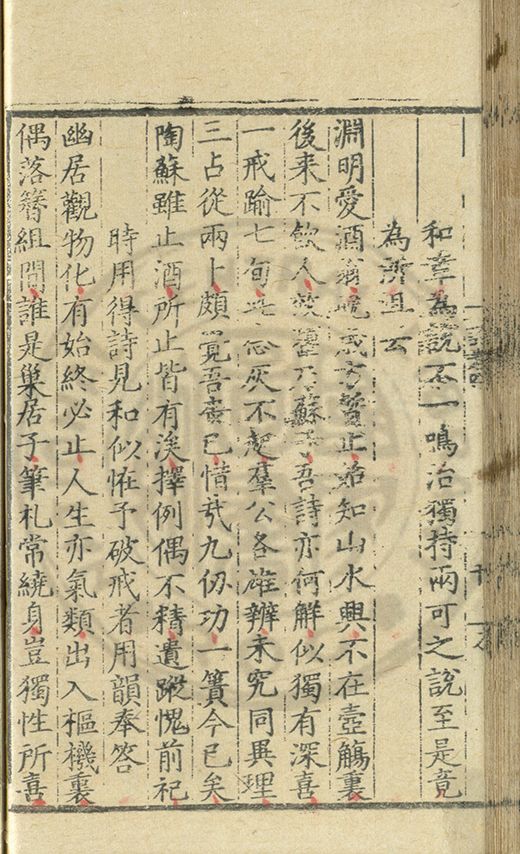 和章為說不一鳴治獨持兩可之說至是竟
為濟且云
淵明愛酒翁晚歲方暫止始知山水興不在壺觴裏
後来不飲人茲蘇子吾詩亦何鮮似獨有深喜
一戒踰七旬此念灰不起羣公各雄辨未究同異理
三占從兩卜頗覺吾衰已惜㢤九仞功一簣今已矣
陶蘇雖止酒所止皆有涘擇例偶不精遺蹤愧前祀
時用得詩見和似怪予破戒者用韻奉答
幽居觀物化有始終必止人生亦氣類出入樞機裏
偶落簪組間誰是巢居子筆札常繞身豈獨性所喜